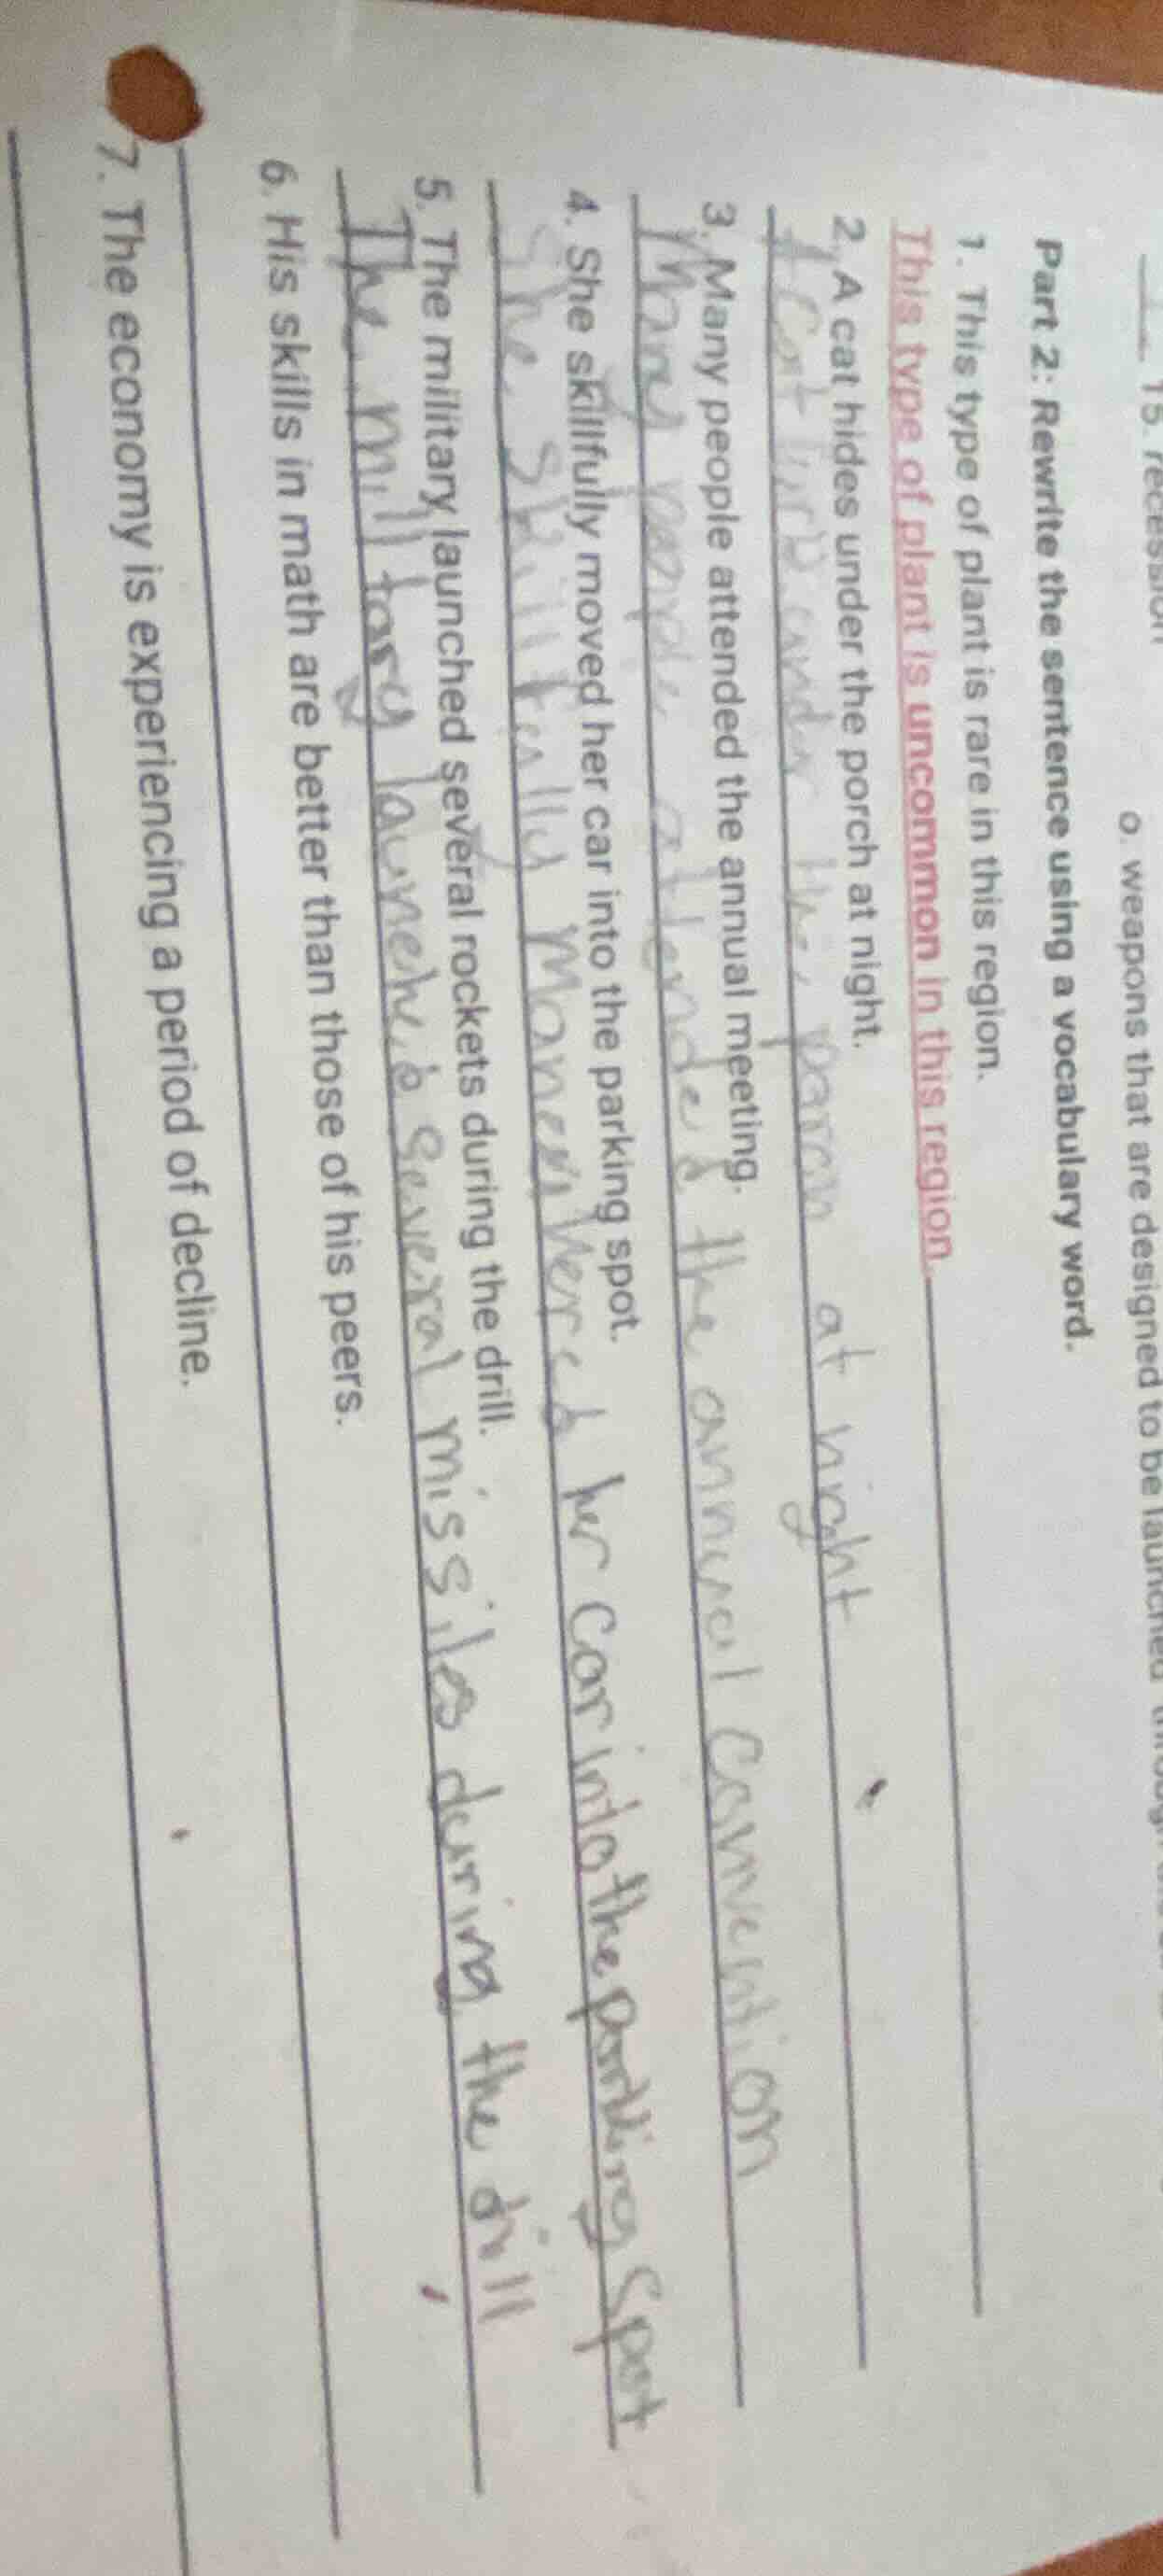 15. recession
o. weapons that are designed to be launched
Part 2: Rewrite the sentence using a vocabulary word.
1. This type of plant is rare in this region.
This type of plant is uncommon in this region.
2. A cat hides under the porch at night.
A cat lurk under the porch at night
3. Many people attended the annual meeting.
Many people attended the annual convention
4. She skillfully moved her car into the parking spot.
She skillfully her car into the parking spot
5. The military launched several rockets during the drill.
The military launched several missiles during the drill
6. His skills in math are better than those of his peers.
7. The economy is experiencing a period of decline.